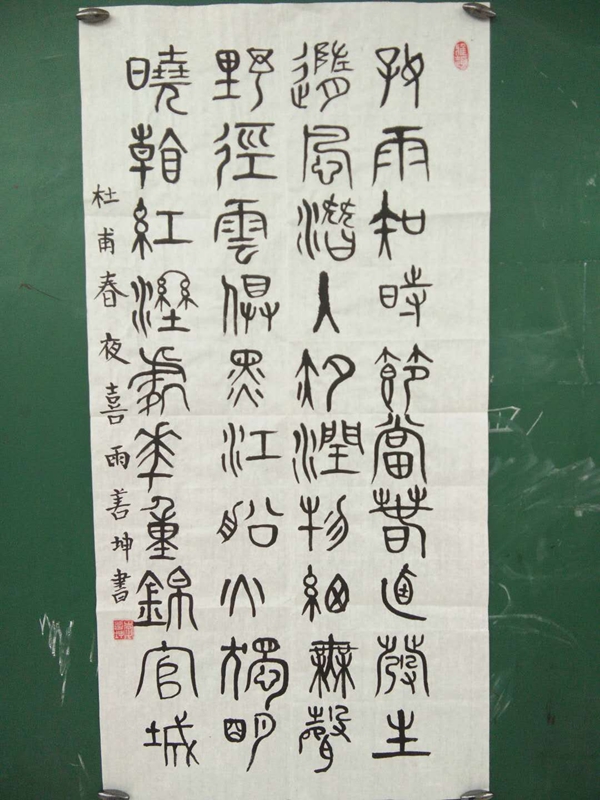 好雨知時節當春迺發生
隨風潛入夜潤物細無聲
野徑雲俱黑江船火獨明
曉看紅濕處花重錦官城
杜甫春夜喜雨善坤書